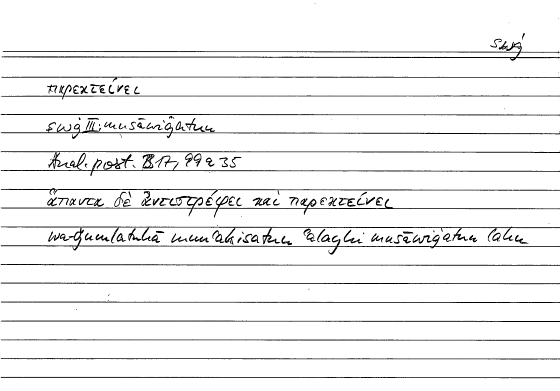 swġ
παρεκτείνει
swġ III; musāwiġatun
Anal. post. B 17, 99 a 35
ἅπαντα δὲ ἀντιστρέφει καὶ παρεκτείνει
wa-ǧumlatuhā munʿakisatun ʿalayhi musāwiġatun lahu